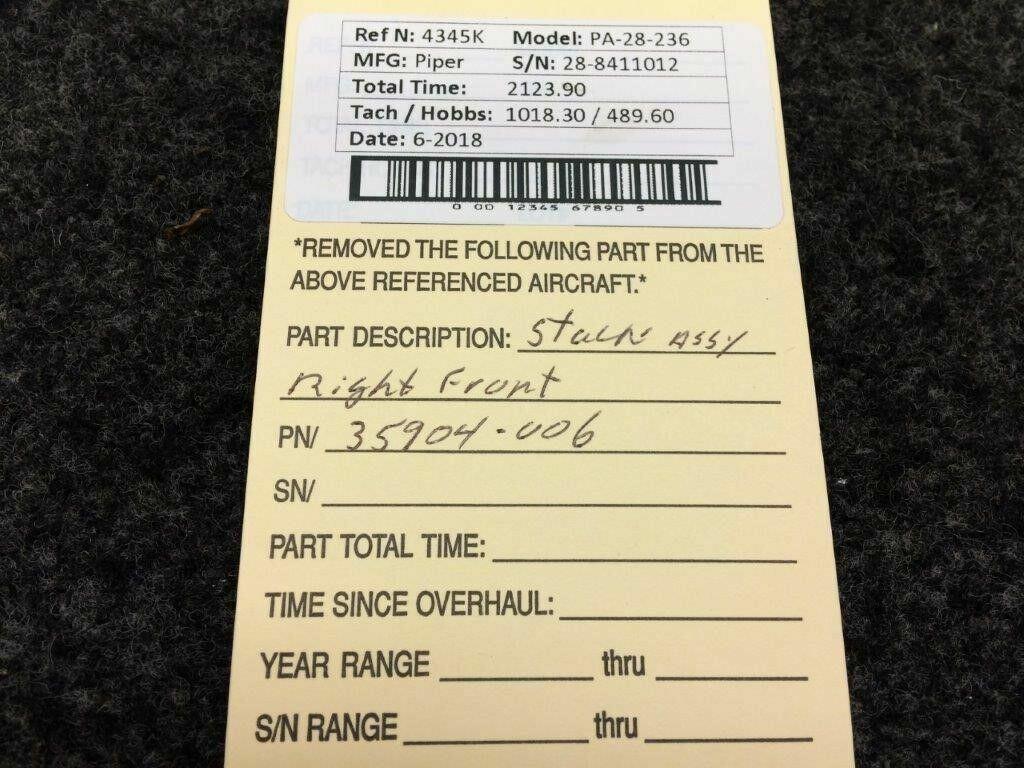 Ref N: 4345K Model: PA-28-236
MFG: Piper S/N: 28-8411012
Total Time: 2123.90
Tach / Hobbs: 1018.30 / 489.60
Date: 6-2018
0 00 12345 67890 5
*REMOVED THE FOLLOWING PART FROM THE
ABOVE REFERENCED AIRCRAFT.*
PART DESCRIPTION: Stack Assy
Right Front
PN/ 35904-006
SN/
PART TOTAL TIME:
TIME SINCE OVERHAUL:
YEAR RANGE thru
S/N RANGE thru